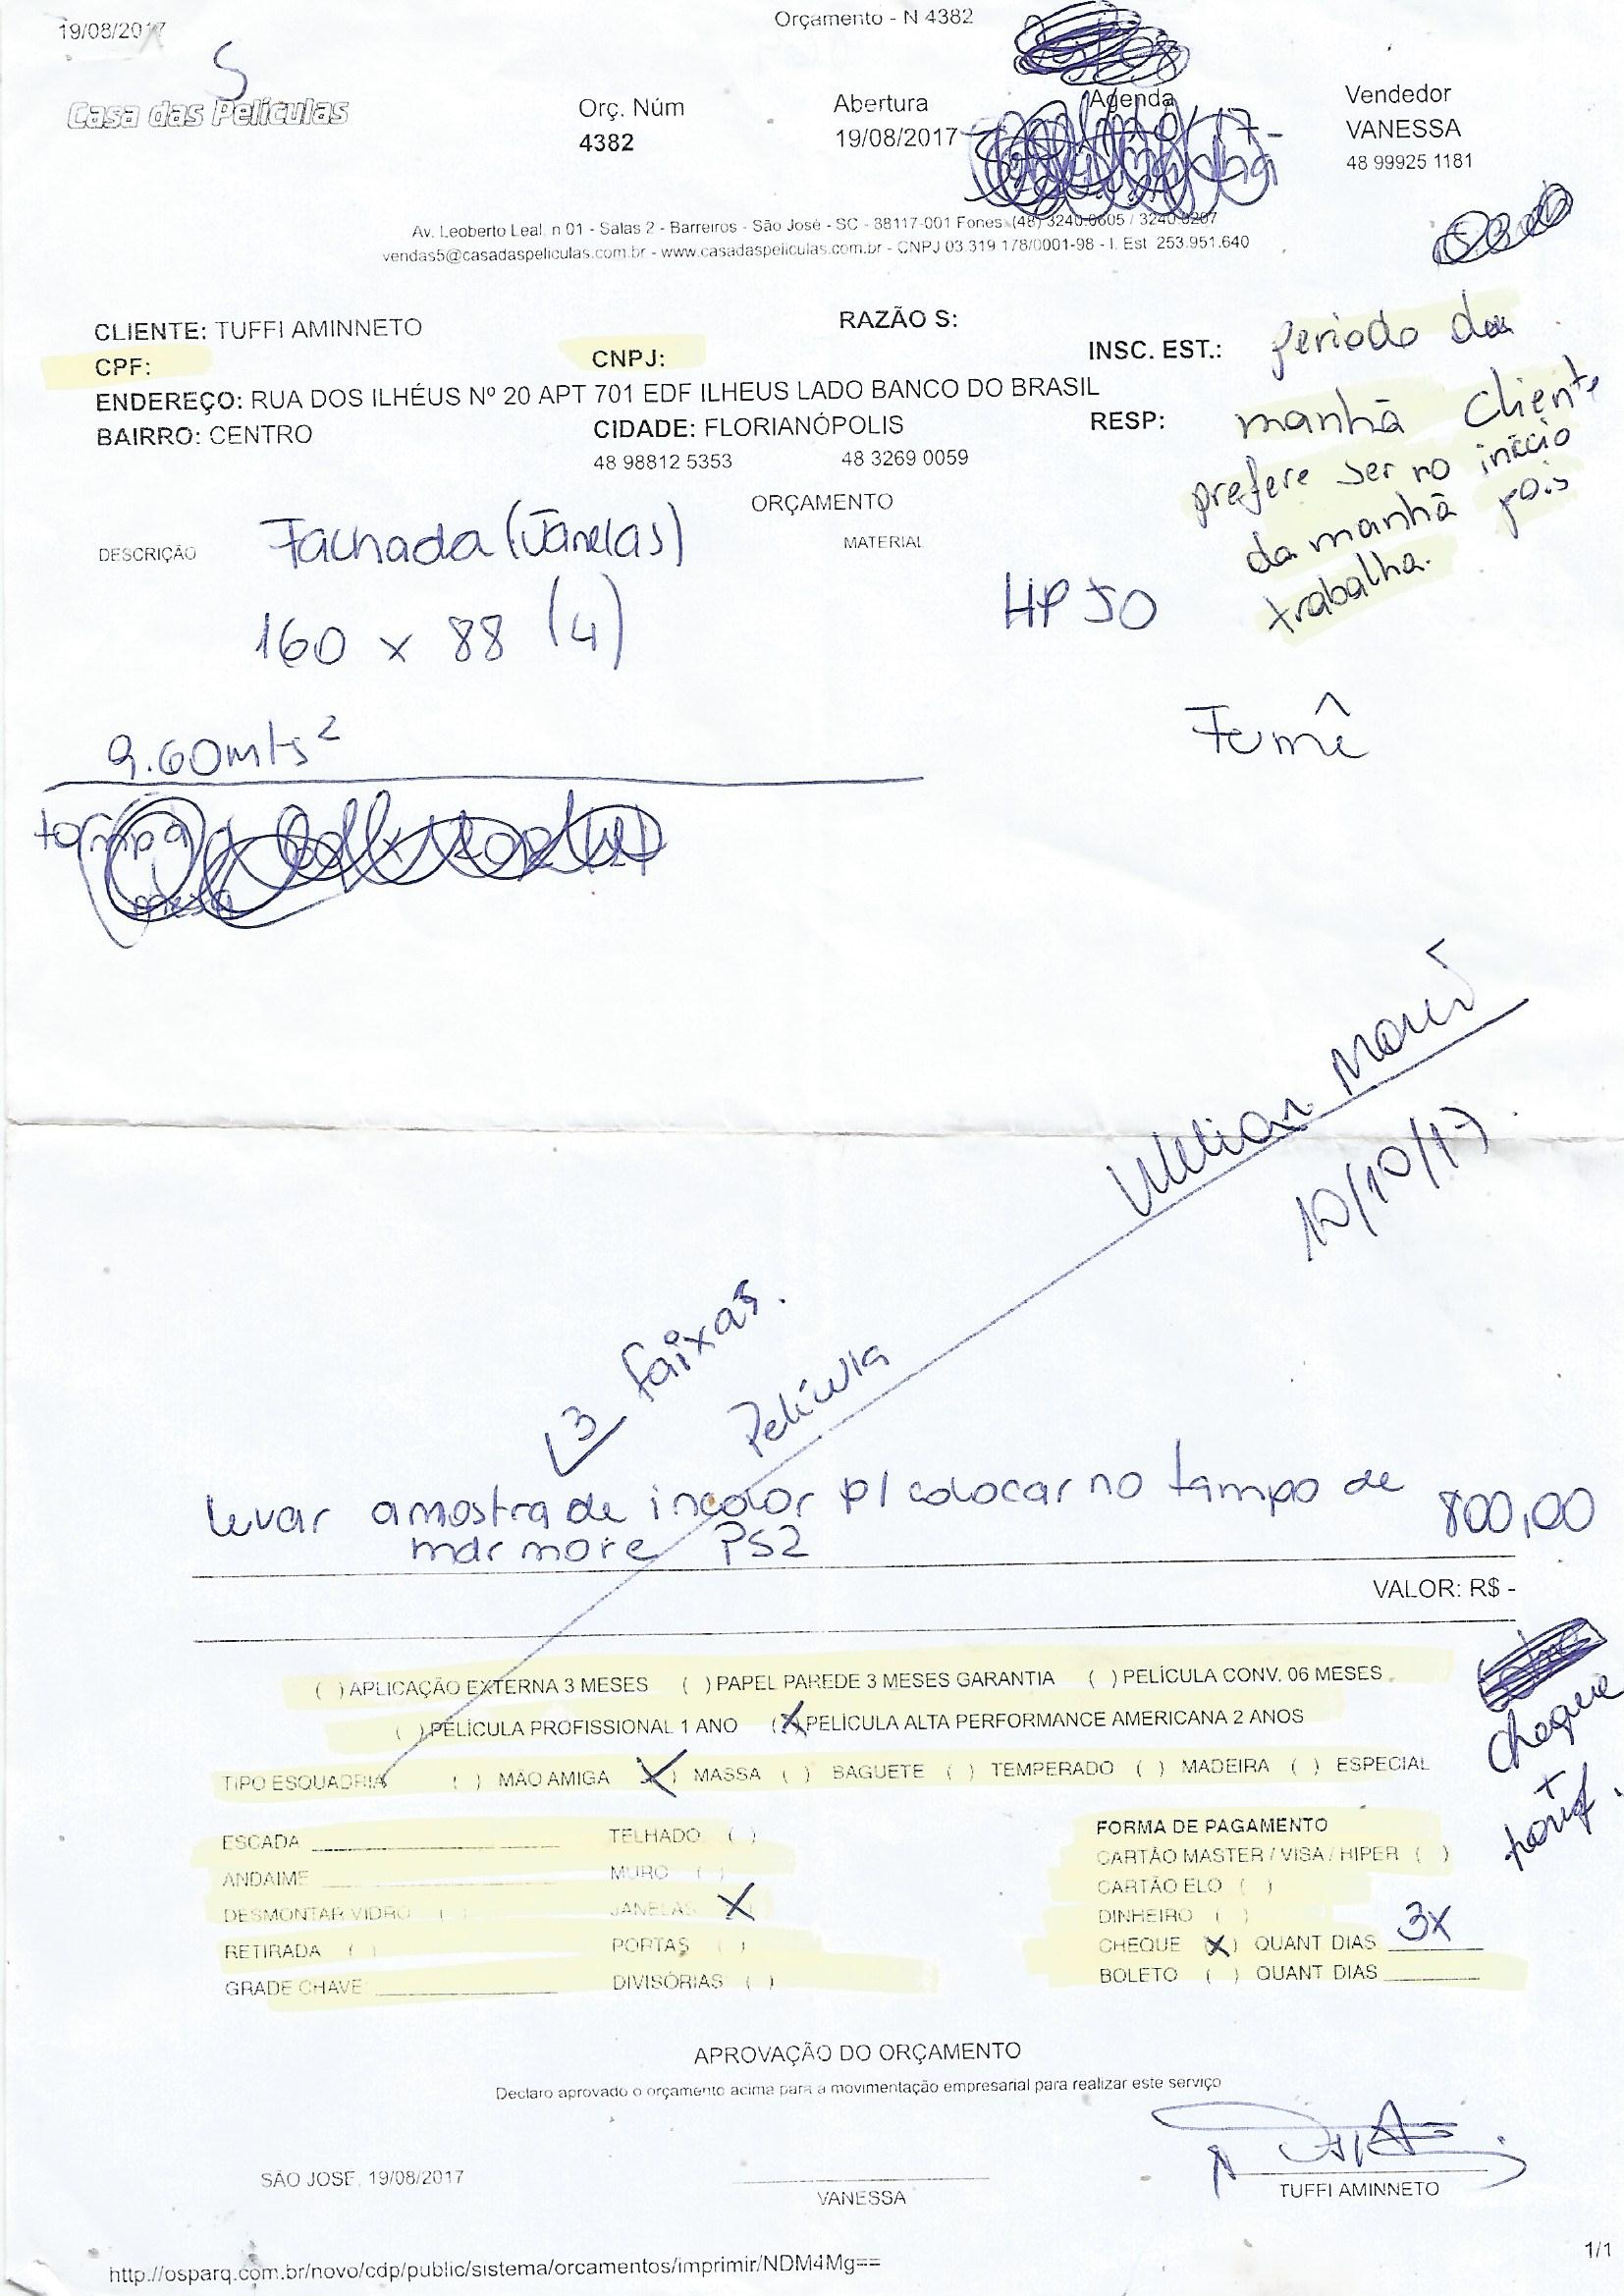 19/08/2017
Orçamento - N 4382
S
Casa das Películas
Orç. Núm
4382
Abertura
19/08/2017
Agenda
Vendedor
VANESSA
48 99925 1181
Av. Leoberto Leal, n 01 - Salas 2 - Barreiros - São José - SC - 88117-001 Fones (48) 3240.0605 / 3240.0207
vendas5@casadaspeliculas.com.br - www.casadaspeliculas.com.br - CNPJ 03.319.178/0001-98 - I. Est 253.951.640
CLIENTE: TUFFI AMINNETO
RAZÃO S:
CPF:
CNPJ:
INSC. EST.:
ENDEREÇO: RUA DOS ILHÉUS Nº 20 APT 701 EDF ILHEUS LADO BANCO DO BRASIL
BAIRRO: CENTRO
CIDADE: FLORIANÓPOLIS
RESP:
48 98812 5353
48 3269 0059
periodo da
manhã Cliente
prefere ser no inicio
da manhã pois
trabalha.
ORÇAMENTO
DESCRIÇÃO
MATERIAL
Fachada (Janelas)
160 x 88 (4)
HP 50
Fumê
9.60mts²
10/10/17
3 faixas.
Película
levar amostra de incolor p/ colocar no tampo de
marmore PS2
800,00
VALOR: R$ -
( ) APLICAÇÃO EXTERNA 3 MESES ( ) PAPEL PAREDE 3 MESES GARANTIA ( ) PELÍCULA CONV. 06 MESES
( ) PELÍCULA PROFISSIONAL 1 ANO (X PELÍCULA ALTA PERFORMANCE AMERICANA 2 ANOS
TIPO ESQUADRIA ( ) MÃO AMIGA (X) MASSA ( ) BAGUETE ( ) TEMPERADO ( ) MADEIRA ( ) ESPECIAL
cheque
+
ESCADA
TELHADO ( )
ANDAIME
MURO ( )
DESMONTAR VIDRO ( )
JANELAS X
RETIRADA ( )
PORTAS ( )
GRADE CHAVE
DIVISÓRIAS ( )
FORMA DE PAGAMENTO
CARTÃO MASTER / VISA / HIPER ( )
CARTÃO ELO ( )
DINHEIRO ( )
CHEQUE (X) QUANT DIAS 3X
BOLETO ( ) QUANT DIAS
APROVAÇÃO DO ORÇAMENTO
Declaro aprovado o orçamento acima para a movimentação empresarial para realizar este serviço
SÃO JOSE, 19/08/2017
VANESSA
TUFFI AMINNETO
http://osparq.com.br/novo/cdp/public/sistema/orcamentos/imprimir/NDM4Mg==
1/1